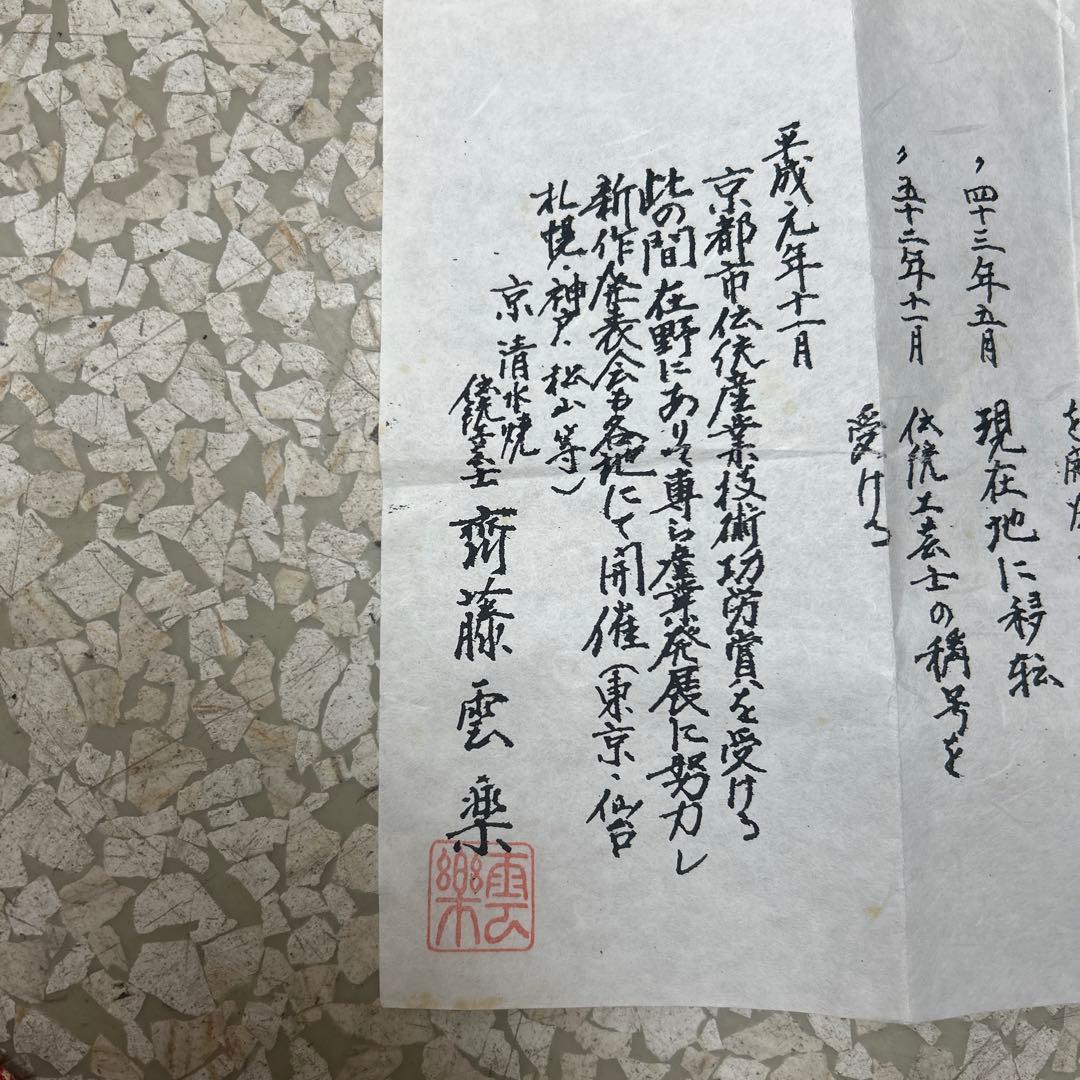 〃四十三年五月 現在地に移転
〃五十二年十一月 伝統工芸士の稱号を
受ける
平成元年十一月
京都市伝統産業技術功労賞を受ける
此の間在野にありて専ら産業発展に努力し
新作発表会も各地にて開催(東京・仙台
札幌・神戸・松山等)
京清水焼
伝統工芸士 齊藤雲楽
雲樂